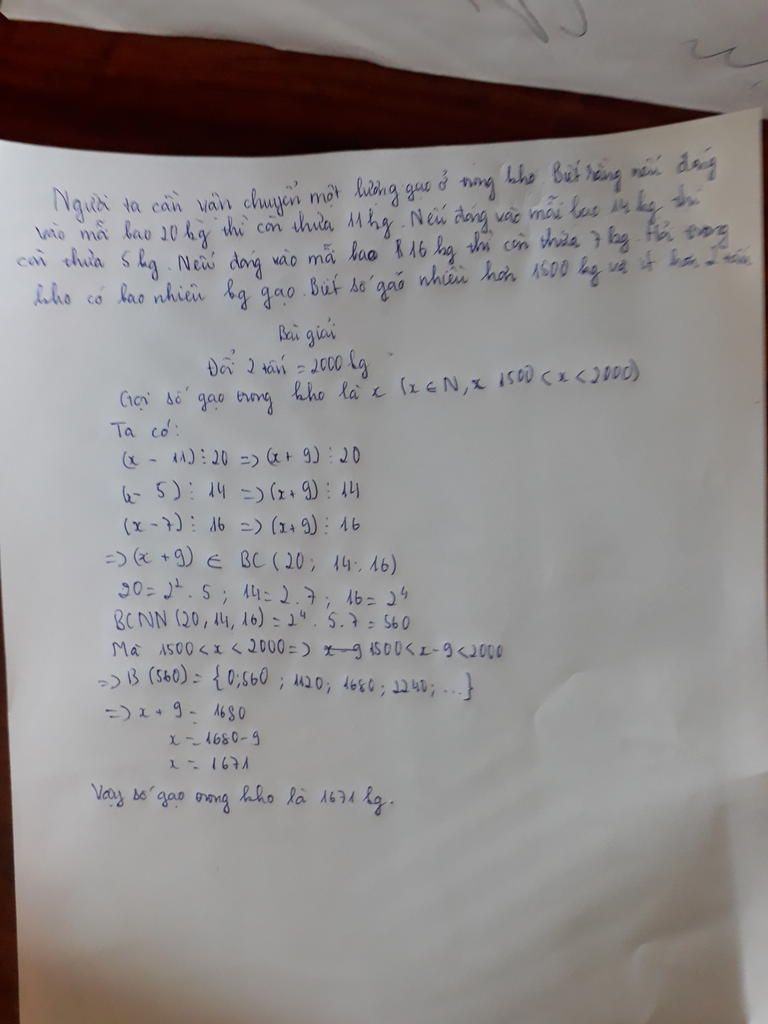 Người ta cần vận chuyển một lượng gạo ở trong kho Biết rằng nếu đóng
vào mỗi bao 20 kg thì còn thừa 11 kg. Nếu đóng vào mỗi bao 14 kg thì
còn thừa 5 kg. Nếu đóng vào mỗi bao 16 kg thì còn thừa 7 kg. Hỏi trong
kho có bao nhiêu kg gạo. Biết số gạo nhiều hơn 1500 kg và ít hơn 2 tấn
Bài giải
Đổi 2 tấn = 2000 kg
Gọi số gạo trong kho là x (x ∈ N, x 1500 < x < 2000)
Ta có:
(x - 11) ⋮ 20 => (x + 9) ⋮ 20
(x - 5) ⋮ 14 => (x + 9) ⋮ 14
(x - 7) ⋮ 16 => (x + 9) ⋮ 16
=> (x + 9) ∈ BC (20; 14; 16)
20 = 2². 5 ; 14 = 2 . 7 ; 16 = 2⁴
BCNN (20, 14, 16) = 2⁴ . 5 . 7 = 560
Mà 1500 < x < 2000 => x - 9 1500 < x - 9 < 2000
=> B (560) = {0; 560 ; 1120; 1680; 2240; ...}
=> x + 9 = 1680
x = 1680 - 9
x = 1671
Vậy số gạo trong kho là 1671 kg.